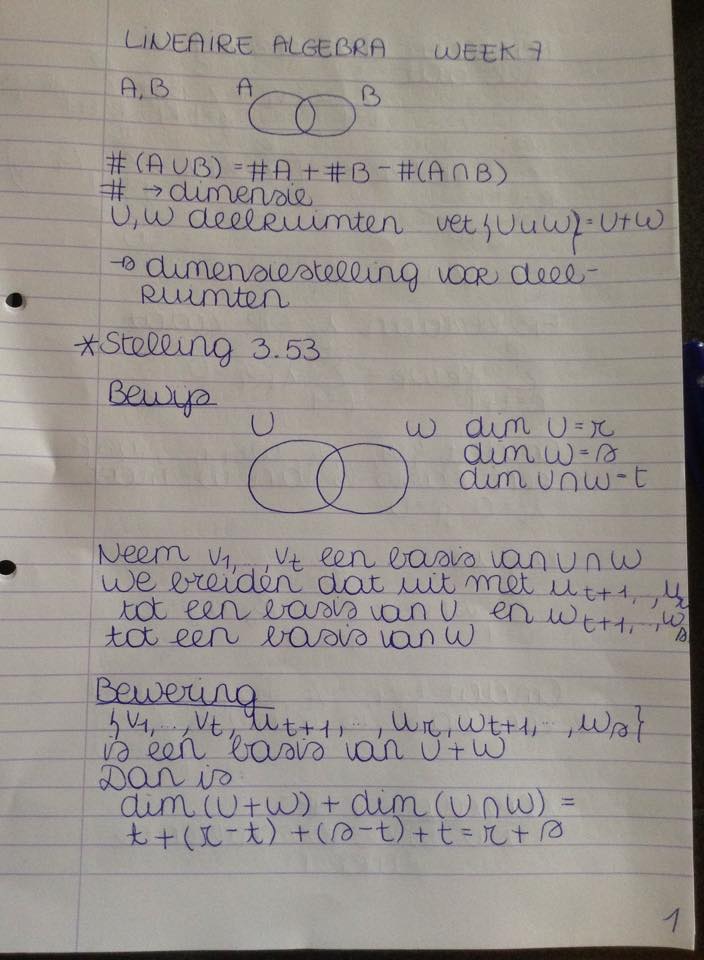 LINEAIRE ALGEBRA WEEK 7
A, B A B
#(A∪B) = #A + #B - #(A∩B)
# → dimensie
U, W deelruimten vct{U∪W} = U+W
→ dimensiestelling voor deel-
ruimten
*Stelling 3.53
Bewijs
U W dim U = r
dim W = s
dim U∩W = t
Neem v1, .., vt een basis van U∩W
We breiden dat uit met ut+1, .., ur
tot een basis van U en wt+1, .., ws
tot een basis van W
Bewering
{v1, .., vt, ut+1, .., ur, wt+1, .., ws}
is een basis van U+W
Dan is
dim (U+W) + dim (U∩W) =
t + (r-t) + (s-t) + t = r + s
1